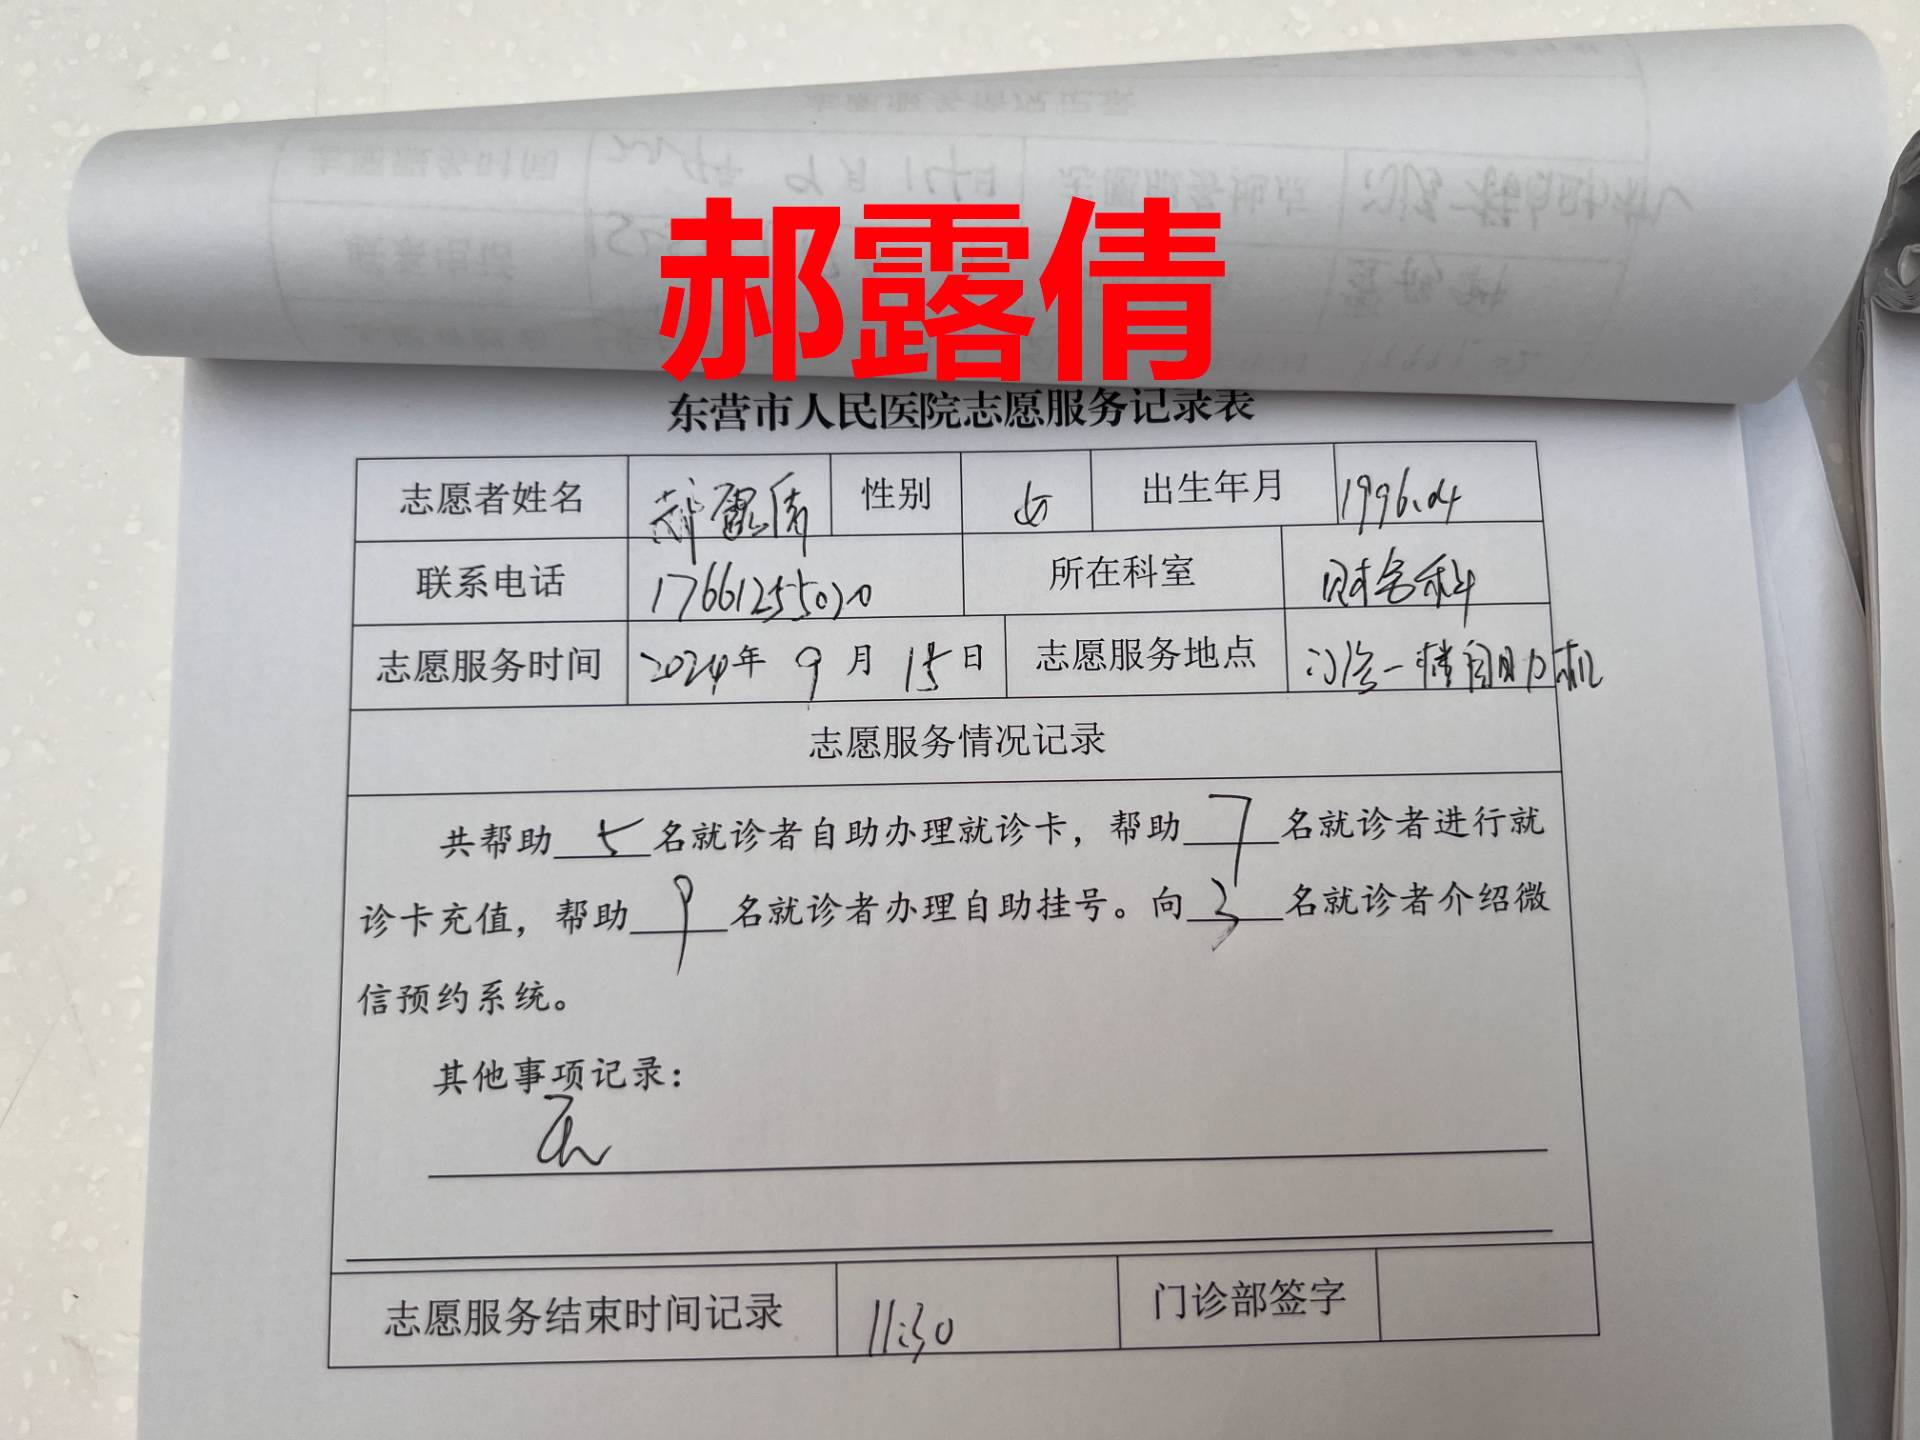 郝露倩
东营市人民医院志愿服务记录表
志愿者姓名 郝露倩 性别 女 出生年月 1996.04
联系电话 17661255020 所在科室 财务科
志愿服务时间 2024年 9月 15日 志愿服务地点 门诊一楼自助机
志愿服务情况记录
共帮助 5 名就诊者自助办理就诊卡，帮助 7 名就诊者进行就
诊卡充值，帮助 9 名就诊者办理自助挂号。向 3 名就诊者介绍微
信预约系统。
其他事项记录：
无
志愿服务结束时间记录 11:30 门诊部签字